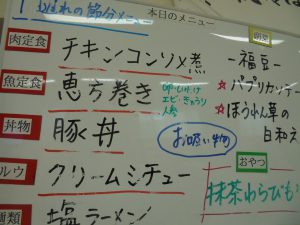 れの節分メニュー
本日のメニュー
肉定食
チキンコンソメ煮
魚定食
恵方巻き
卵・しいたけ
エビ・きゅうり
人参
丼物
豚丼
お吸い物
ルウ
クリームシチュー
麺類
塩ラーメン
副菜
一福豆一
☆パプリカソテー
☆ほうれん草の
日和え
おやつ
抹茶わらびも